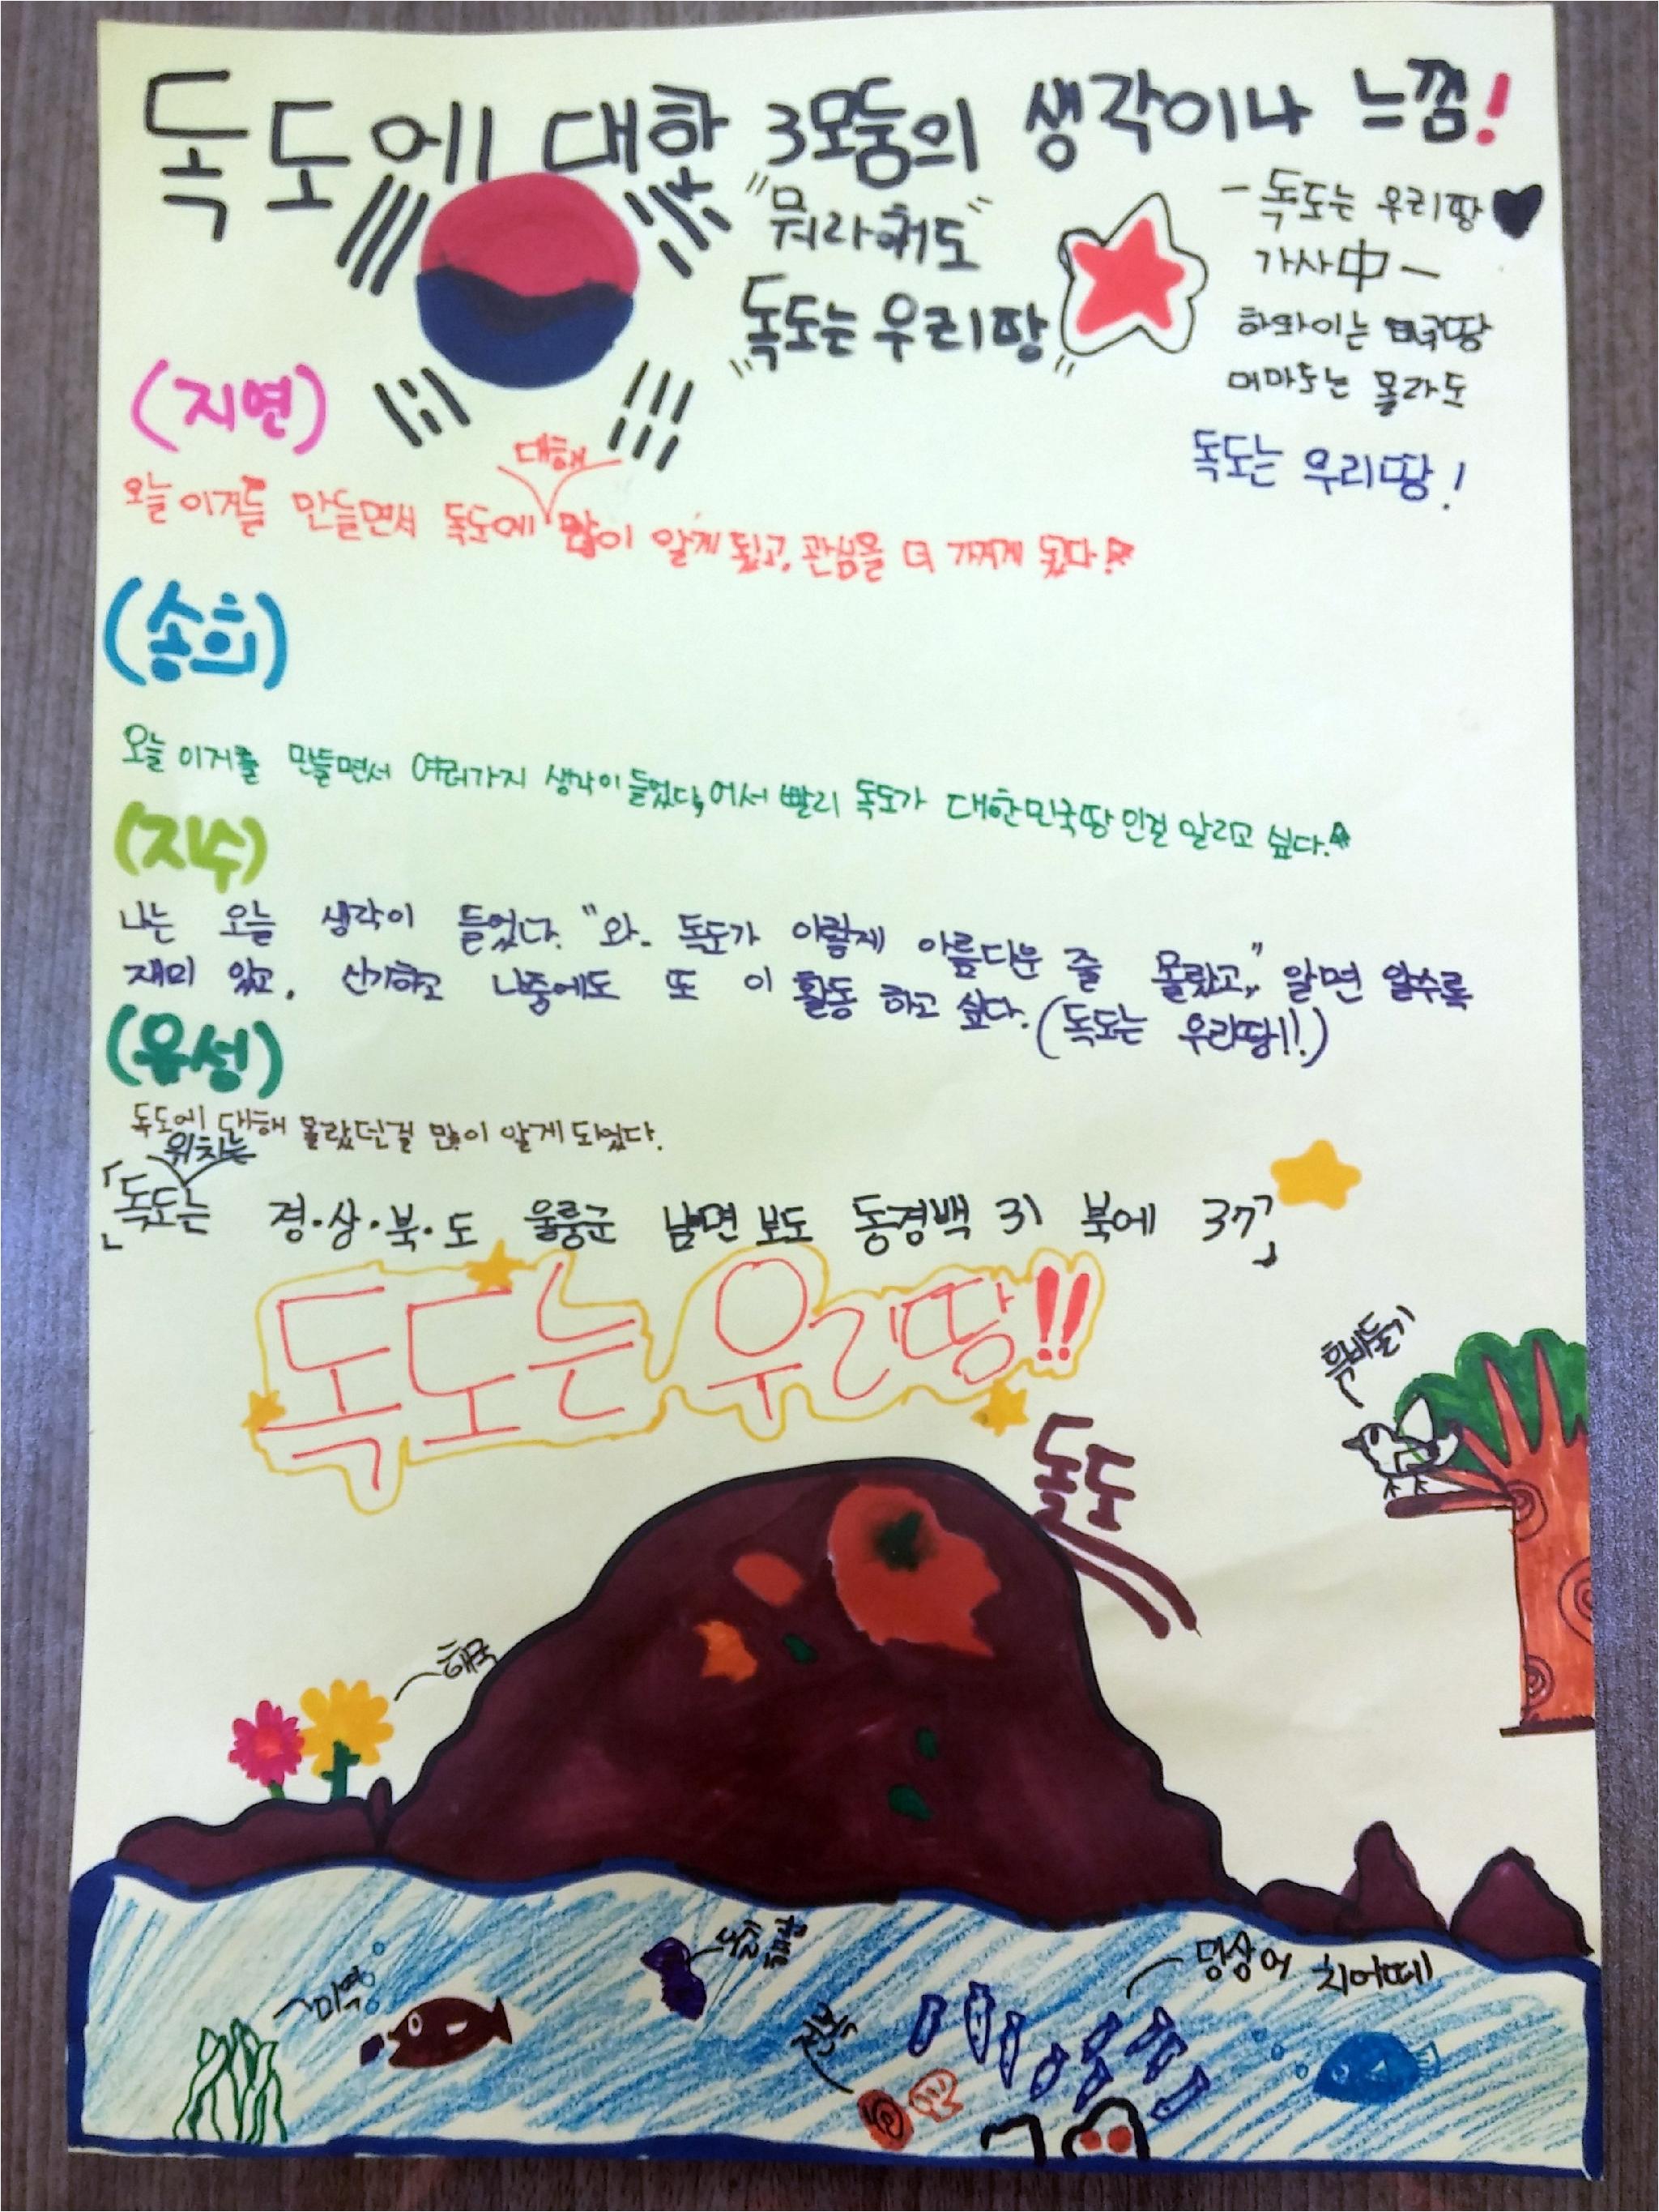 독도에 대한 3모둠의 생각이나 느낌!
"뭐라해도"
"독도는 우리땅"
- 독도는 우리땅
가사中 -
하와이는 미국땅
대마도는 몰라도
독도는 우리땅!
(지연)
대해
오늘 이거를 만들면서 독도에 많이 알게 됬고, 관심을 더 가지게 됬다!
(송희)
오늘 이거를 만들면서 여러가지 생각이 들었다, 어서 빨리 독도가 대한민국땅인걸 알리고 싶다.
(지수)
나는 오늘 생각이 들었다. "와- 독도가 이렇게 아름다운 줄 몰랐고," 알면 알수록
재미 있고, 신기하고 나중에도 또 이 활동 하고 싶다. (독도는 우리땅!!)
(유성)
독도에 대해 몰랐던걸 많이 알게 되었다.
위치는
「독도는 경·상·북·도 울릉군 남면 보도 동경백 31 북에 37」
독도는 우리땅!!
흑비둘기
독도
해국
미역
망상어 치어떼